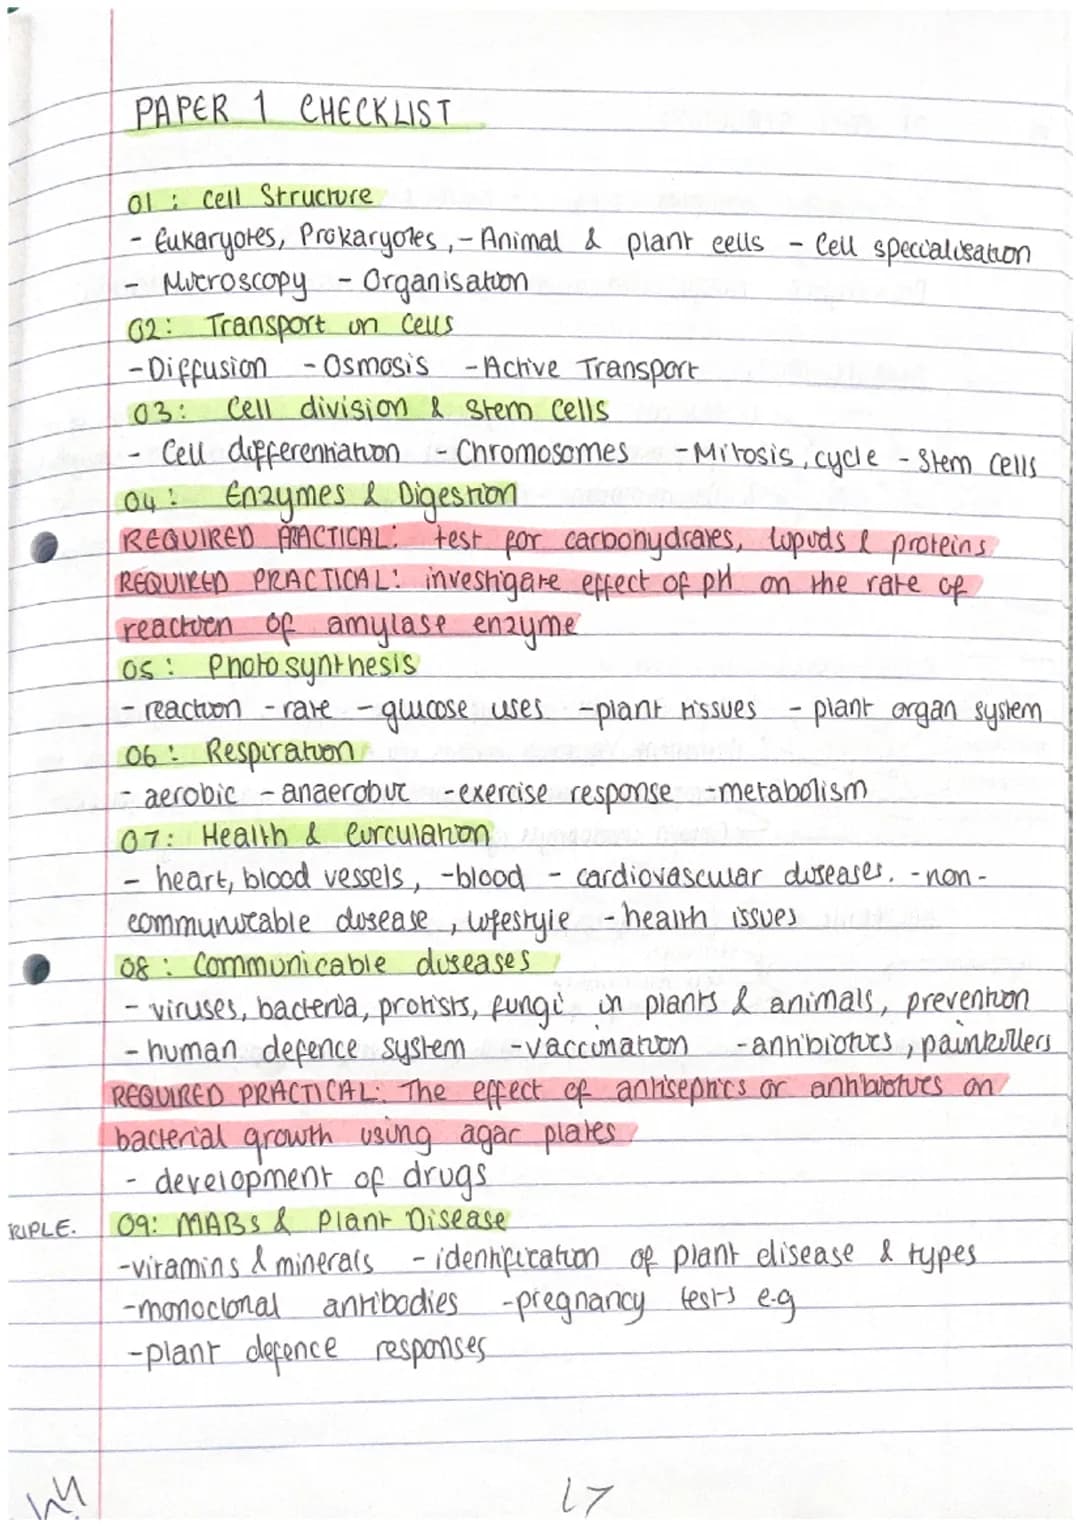 PAPER 1 CHECKLIST
01 : Cell Structure
- Eukaryotes, Prokaryotes, - Animal & plant cells - Cell specialisation
- Microscopy - Organisation
02: Transport in Cells
- Diffusion - Osmosis - Active Transport
03: Cell division & Stem Cells
- Cell differentiation - Chromosomes - Mitosis, cycle - Stem Cells
04: Enzymes & Digestion
REQUIRED PRACTICAL: test for carbohydrates, lipids & proteins
REQUIRED PRACTICAL: investigate effect of pH on the rate of
reaction of amylase enzyme
05: Photosynthesis
- reaction - rate - glucose uses - plant tissues - plant organ system
06: Respiration
- aerobic - anaerobic - exercise response - metabolism
07: Health & Circulation
- heart, blood vessels, - blood - cardiovascular diseases. - non-
communicable disease, lifestyle - health issues
08: Communicable diseases
- viruses, bacteria, protists, fungi in plants & animals, prevention
- human defence system - vaccination - antibiotics, painkillers
REQUIRED PRACTICAL: The effect of antiseptics or antibiotics on
bacterial growth using agar plates
- development of drugs
RIPLE. 09: MABs & Plant Disease
- vitamins & minerals - identification of plant disease & types
- monoclonal antibodies - pregnancy tests e.g
- plant defence responses